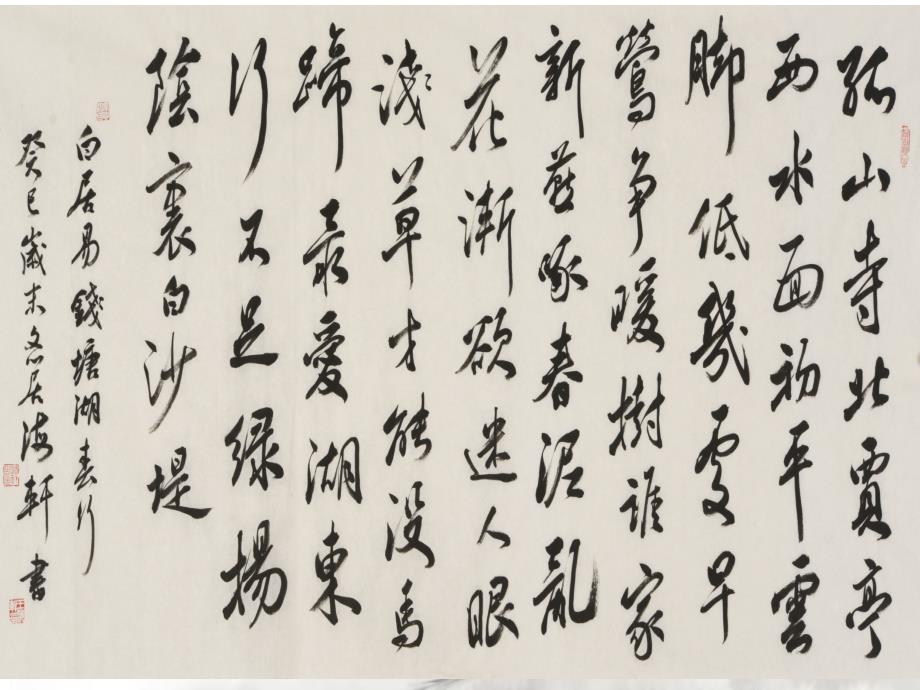 孤山寺北賈亭
西水面初平雲
脚低幾處早
鶯争暖樹誰家
新燕啄春泥亂
花漸欲迷人眼
淺草才能没馬
蹄最愛湖東
行不足緑楊
陰裏白沙堤
白居易錢塘湖春行
癸巳歲末居海軒書